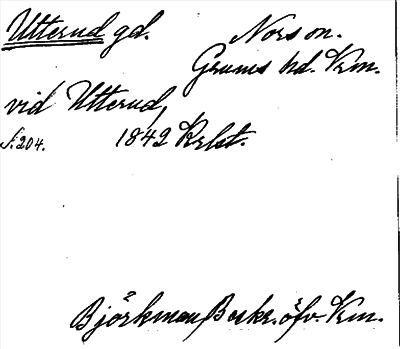 Utterud gd. Nors sn.
Grums hd. Krm.
vid Utterud,
S. 204. 1842 Krlst.
Björkman, Beskr. öfv. Vrm.